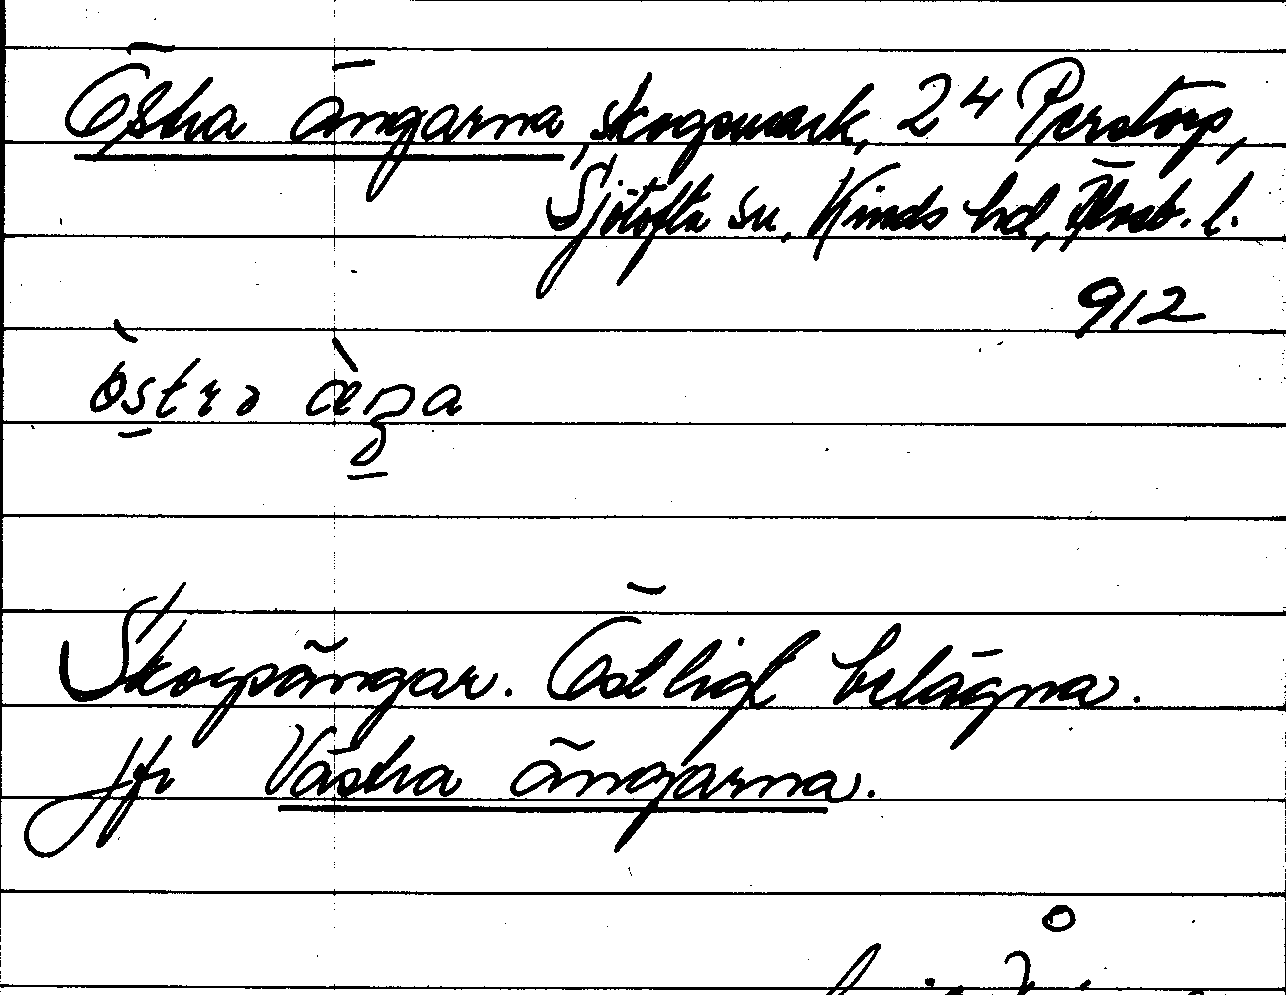 Östra ängarna, skogsmark, 24 Perstorp,
Sjötofta sn, Kinds hd, Älvsb. l.
912
östra æŋa
Skogsängar. Östligt belägna.
Jfr Västra ängarna.